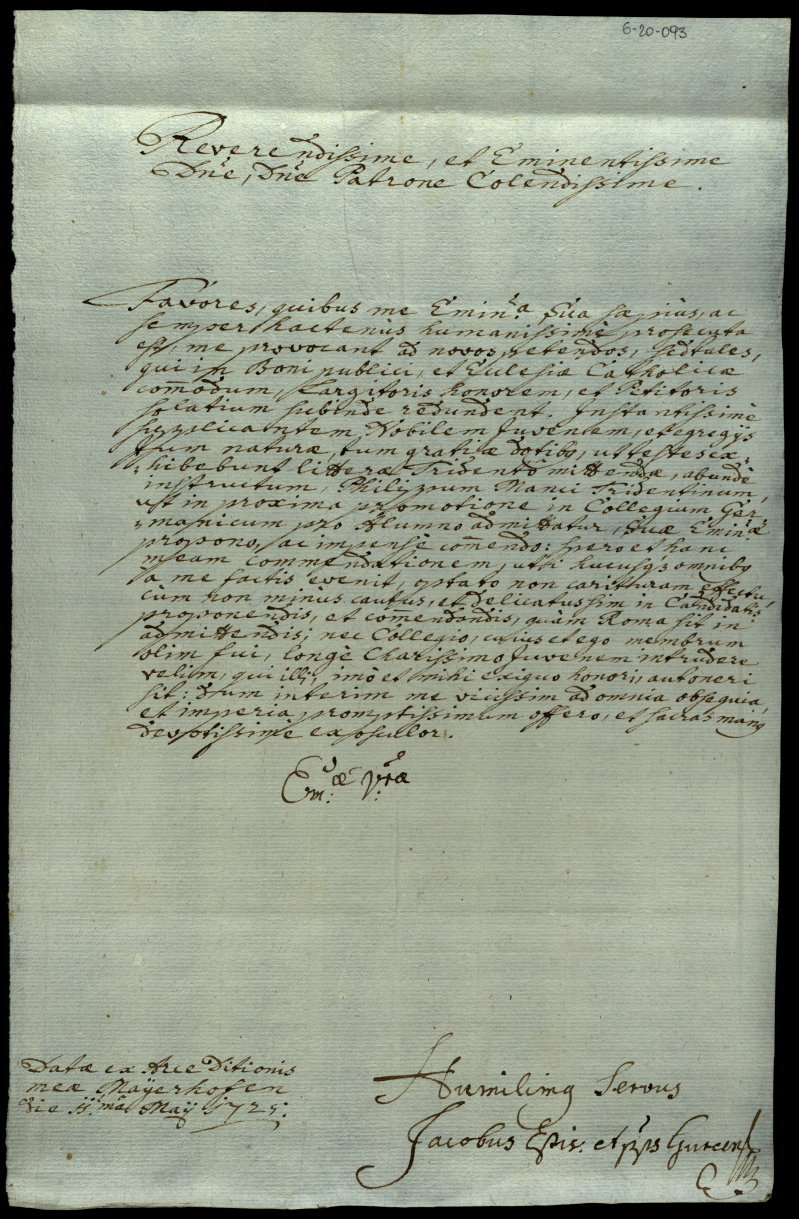 6-20-093
Reverendissime, et Eminentissime
Dne, Dne Patrone Colendissime.
Favores, quibus me Emin:a Sua sæpius, ac
semper hactenus humanissime prosecuta
est, me provocant ad novos petendos, sed tales,
qui in Boni publici, et Ecclesiæ Catholicæ
com̄odum, Largitoris honorem, et Petitoris
solatium subinde redundent. Instantissimè
supplicantem Nobilem Juvenem, et egregijs
tum naturæ, tum gratiæ dotib9, ut testes ex-
-hibebunt litteræ Tridento mittendæ, abundè
instructum, Philippum Manci Tridentinum,
ut in proxima promotione in Collegium Ger
-manicum pro Alumno admittatur, Suæ Emin:æ
propono, ac impensè com̄endo: spero et hanc
meam commendationem, uti hucusq3 omnib9
a me factis evenit, optato non carituram effectu,
cum non minus cautus, et delicatus sim in Candidatis
proponendis, et com̄endandis, quam Roma sit in
admittendis; nec Collegio, cuius et ego membrum
olim fui, longè Charissimo Juvenem intrudere
velim, qui illi, imò et mihi exiguo honori, aut oneri
sit: dum interim me vicissim ad omnia obsequia,
et imperia promptissimum offero, et sacras man9
devotissimè exosculor.
Em:æ Vræ
Datæ ex Arce Ditionis
meæ Mayerhofen
die 11:ma Maÿ 1721:
Humilim9 Servus
Jacobus Epis: et pps Gurcens